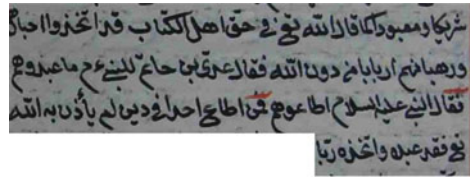 شريكا ومعبودا كما قال الله تع في حق اهل الكتاب قد اتخذوا احبارهم
ورهبانهم اربابا من دون الله فقال عدي بن حاتم للنبي ءم ما عبدوهم
فقال النبي عليه السلام اطاعوهم فمن اطاع احدا في دين لم يأذن به الله
تع فقد عبده واتخذه ربا